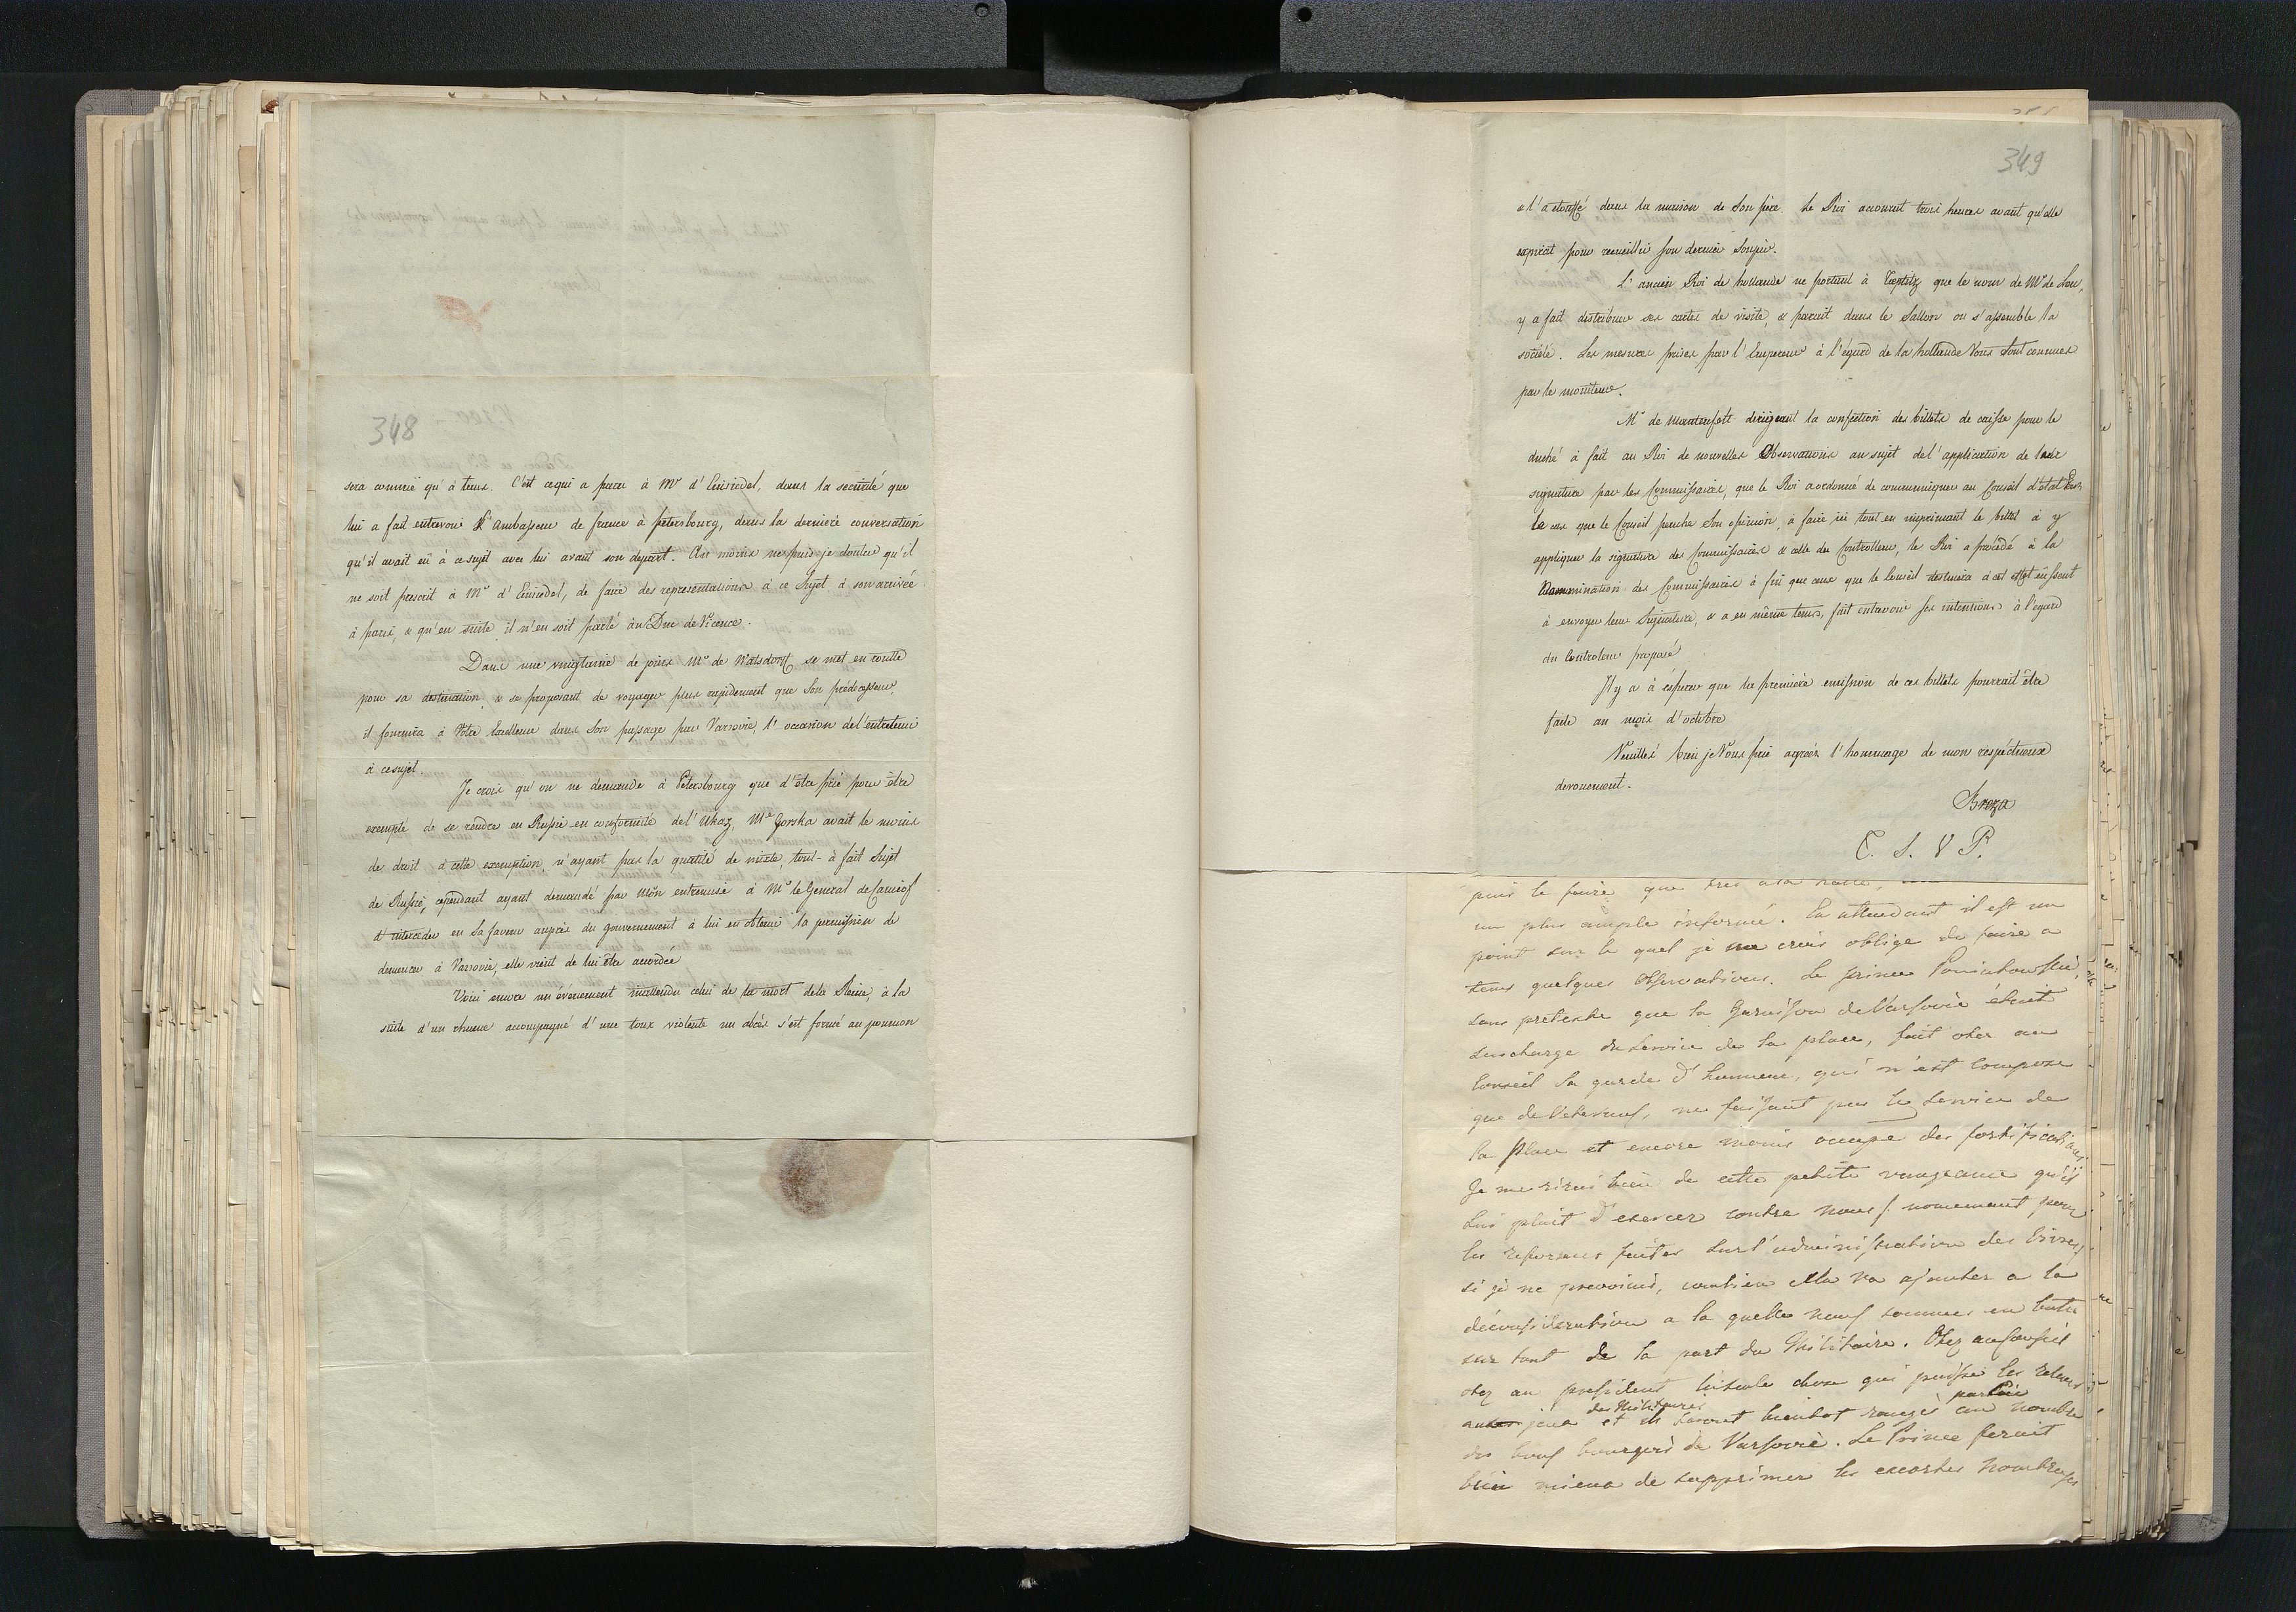 348
sera connue qu'à tems. C'est ce qui a paru à Mr d'Einsiedel, dans la securité que
lui a fait entrevoir l'ambasseur de france à petersbourg, dans la derniere conversation
qu'il avait eü à ce sujet avec lui avant son depart. Au moins ne puis je douter qu'il
ne soit prescrit à Mr d'Einsiedel, de faire des representations à ce sujet à son arrivée
à paris, & qu'en suite il n'en soit parlé au Duc de Vicence.
Dans une vingtaine de jours Mr de Watsdorff se met en routte
pour sa destination, & se proposant de voyager plus rapidement que son prédecesseur
il fournira à Votre Excellence dans son passage par Varsovie, l'occasion de l'entretenir
à ce sujet.
Je crois qu'on ne demande à Petersbourg que d'être prié pour être
exempté de se rendre en Russie en conformité de l'Ukaz, Me Gorska avait le moins
de droit à cette exemption n'ayant pas la qualité de mixte, tout-à fait Sujet
de Russie, cependant ayant demandé par mon entremise à Mr le General de
d'interceder en sa faveur auprès du gouvernement à lui en obtenir la permission de
demeurer à Varsovie, elle vient de lui être accordée
Voici encore un évenement inattendu celui de la mort de la Reine, à la
suite d'un rhume accompagné d'une toux violente un abcés s'est formé au poumon
349
& l'a etouffé dans la maison de son père. le Roi accourut trois heures avant qu'elle
expirat pour recueillir son dernier soupir.
L'ancien Roi de hollande ne portant à Toeplitz que le nom de Mr de Leu,
y a fait distribuer ses cartes de visite, & parait dans le Sallon ou s'assemble la
société. Les mesures prises par l'Empereur à l'égard de la hollande Vous sont connues
par le moniteur.
Mr de Manteufell dirigeant la confection des billets de caisse pour le
duché à fait au Roi de nouvelles Observations au sujet de l'application de leur
signature par les Commissaires, que le Roi a ordonné de communiquer au Conseil d'état Dans
le cas que le Conseil penche son opinion, à faire ici tout en imprimant le billet à y
appliquer la signature des Commissaires & celle du Controlleur, le Roi a procédé à la
Nommination des Commissaires à fin que ceux que le Conseil destinera à cet effet eüssent
à envoyer leur Signature, & a en même tems, fait entrevoir ses intentions à l'égard
du Controleur proposé
Il y a à espérer que la première emission de ces billets pourrait être
faite au mois d'octobre
Veuillés bien je Vous prie agréer l'hommage de mon respéctueux
devouement.
Breza
T. S. V P.
puis le faire que
un plus ample informé. En attendant il est un
point sur le quel je me crois obligé de faire a
tems quelques observations. Le prince Poniatowski,
sous pretexte que la Garnison de Varsovie étoit
surchargé du service de la place, fait oter au
Conseil la garde d'honneur, qui n'est composée
que de Veterans, ne faisant pas le service de
la place et encore moins occupé des fortifications
Je me rirais bien de cette petite vengeance qu'il
lui plait d'exercer contre nous /: nomement pour
les reformes faites dans l'administration des vivres
si je ne prevoiais, combien elle va ajouter a la
déconsideration a la quelle nous sommes en butte
sur tout de la part du Militaire. Otez au Conseil
otez au president la seule chose qui puisse les relever
aux yeux des Militaires et ils seront bientot rangés par lui au nombre
des bons bourgeois de Varsovie. Le Prince feroit
bien mieux de supprimer les escortes nombreuses